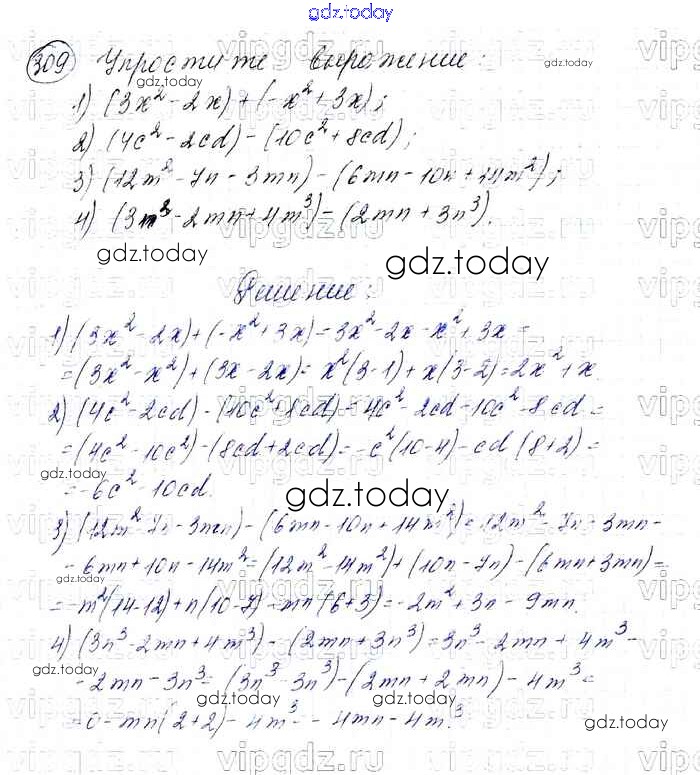 gdz.today
309 Упростите выражение:
1) (3x² - 2x) + (-x² + 3x);
2) (4c² - 2cd) - (10c² + 8cd);
3) (12m² - 7n - 3mn) - (6mn - 10n + 14m²);
4) (3n³ - 2mn + 4m³) - (2mn + 3n³).
gdz.today
gdz.today
Решение:
1) (3x² - 2x) + (-x² + 3x) = 3x² - 2x - x² + 3x =
= (3x² - x²) + (3x - 2x) = x²(3-1) + x(3-2) = 2x² + x.
2) (4c² - 2cd) - (10c² + 8cd) = 4c² - 2cd - 10c² - 8cd =
= (4c² - 10c²) - (8cd + 2cd) = -c²(10-4) - cd(8+2) =
= -6c² - 10cd.
gdz.today
3) (12m² - 7n - 3mn) - (6mn - 10n + 14m²) = 12m² - 7n - 3mn -
- 6mn + 10n - 14m² = (12m² - 14m²) + (10n - 7n) - (6mn + 3mn) =
= -m²(14-12) + n(10-7) - mn(6+3) = -2m² + 3n - 9mn.
4) (3n³ - 2mn + 4m³) - (2mn + 3n³) = 3n³ - 2mn + 4m³ -
- 2mn - 3n³ = (3n³ - 3n³) - (2mn + 2mn) - 4m³ =
= 0 - mn(2+2) - 4m³ = -4mn - 4m³.
gdz.today